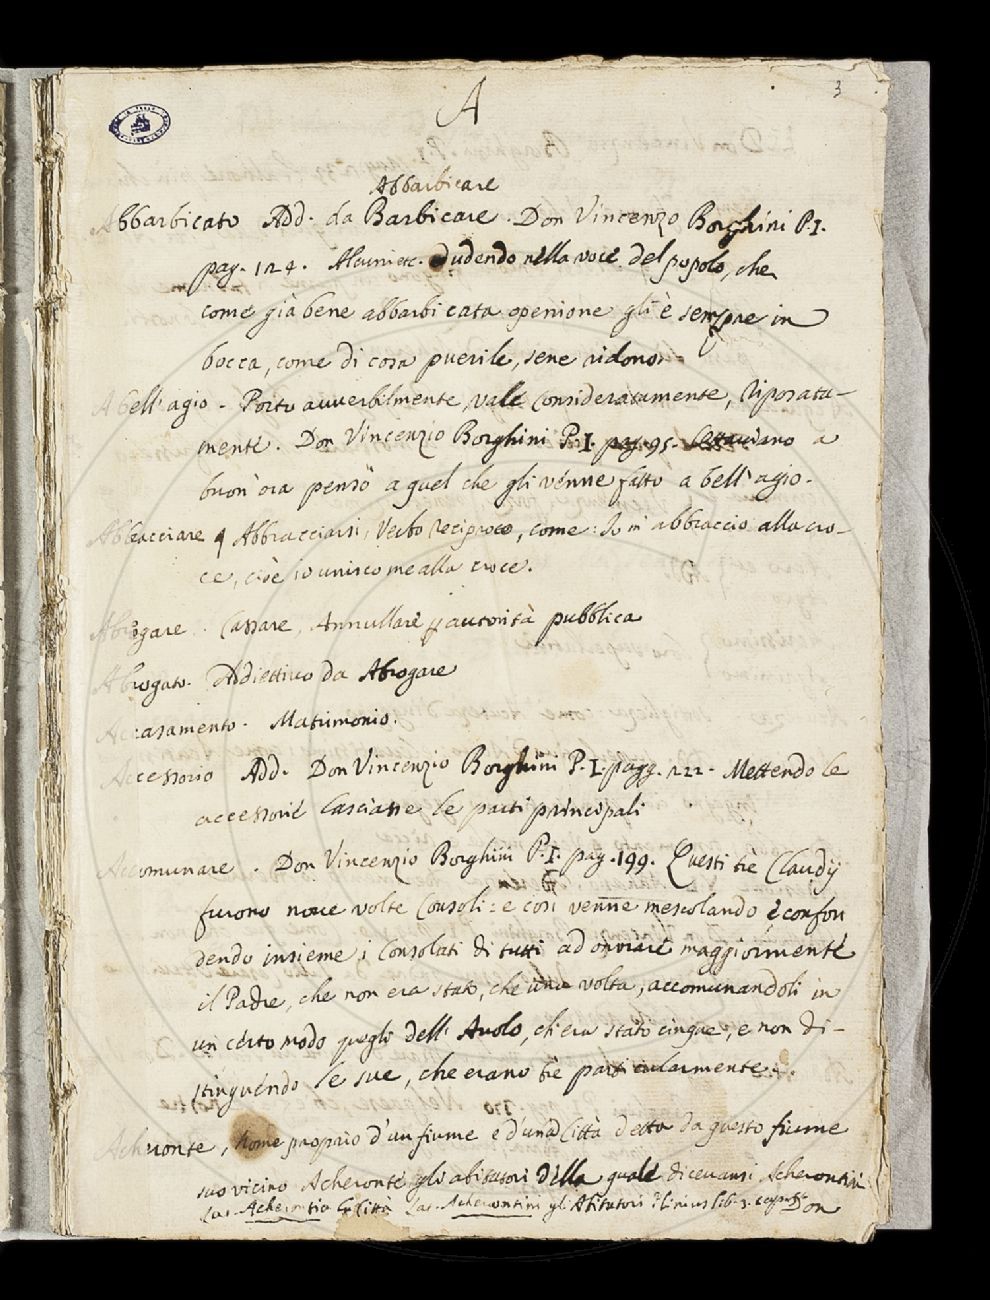 3
A
Abbarbicare
Abbarbicato Add. da Barbicare. Don Vincenzo Borghini P.I.
pag. 124. Alcuni etc. udendo nella voce del popolo, che
come già bene abbarbicata openione gli è sempre in
bocca, come di cosa puerile, sene ridono.
A bell'agio. Posto avverbilmente, vale Consideratamente, Riposata-
mente. Don Vincenzio Borghini P.I. pag. 95. a
buon'ora pensò a quel che gli venne fatto a bell'agio.
Abbracciare Abbracciarsi, Verbo reciproco, come: Io m'abbraccio alla cro-
ce, cioè io unisco me alla croce.
Abrogare. Cassare, Annullare p autorità pubblica
Abrogato. Addiettivo da Abrogare
Accasamento. Matrimonio.
Accessorio Add. Don Vincenzio Borghini P.I. pagg. 222. Mettendo le
accessorie lasciasse le parti principali
Accomunare. Don Vincenzio Borghini P.I. pag. 199. Questi tre Claudij
furono nove volte Consoli: e così venne mescolando, e confon
dendo insieme i Consolati di tutti ad onorare maggiormente
il Padre, che non era stato, che una volta, accomunandoli in
un certo modo quegli dell'Avolo, ch'era stato cinque, e non di-
stinguendo le sue, che erano tre particularmente.
Acheronte, Nome proprio d'un fiume e d'una Città detta da questo fiume
suo vicino Acheronte gli abitatori della quale dicevansi Acherontini
Lat. Acherontia Città Lat. Acherontini gli Abitatori Plinius lib. 3. cap. Don